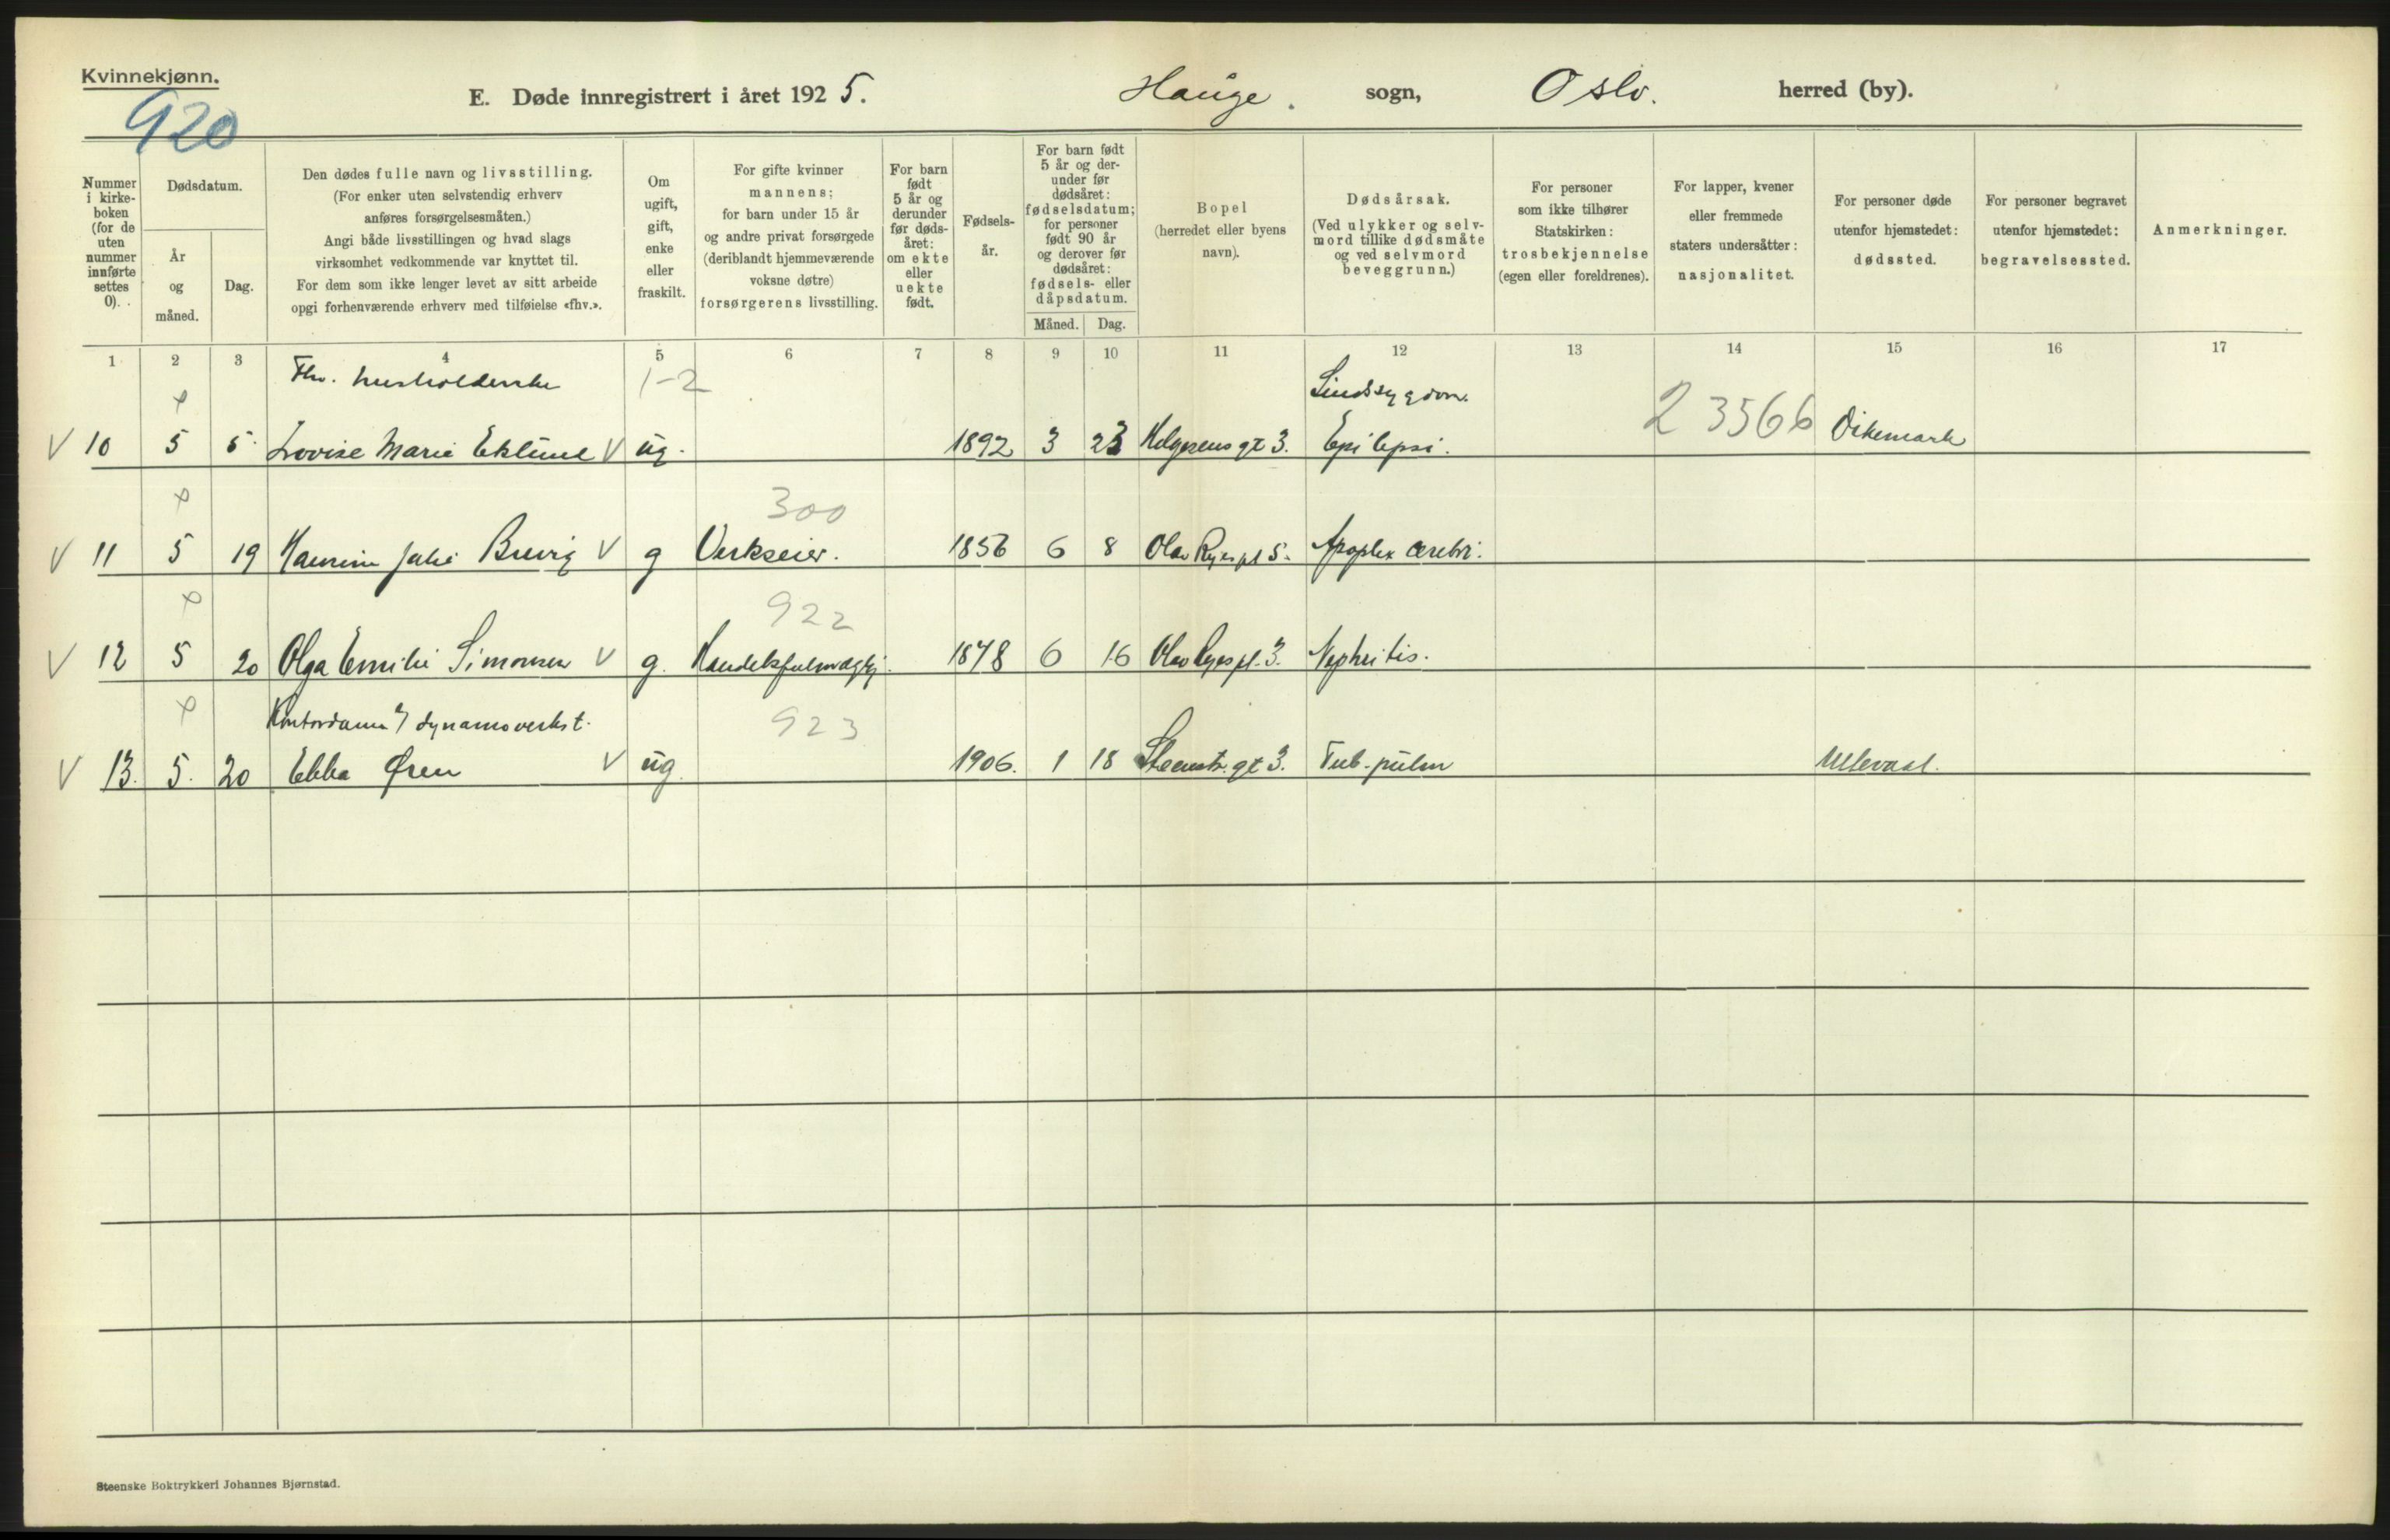 Kvinnekjønn.
920
E. Døde innregistrert i året 192 5. Hauge. sogn, Oslo. herred (by).
Nummer i kirke-boken (for de uten nummer innførte settes 0).
Dødsdatum.
År og måned.
Dag.
Den dødes fulle navn og livsstilling.
(For enker uten selvstendig erhverv
anføres forsørgelsesmåten.)
Angi både livsstillingen og hvad slags
virksomhet vedkommende var knyttet til.
For dem som ikke lenger levet av sitt arbeide
opgi forhenværende erhverv med tilføielse «fhv.».
Om ugift, gift, enke eller fraskilt.
For gifte kvinner
mannens;
for barn under 15 år
og andre privat forsørgede
(deriblandt hjemmeværende
voksne døtre)
forsørgerens livsstilling.
For barn født 5 år og derunder før døds-året: om ekte eller uekte født.
Fødsels-år.
For barn født
5 år og der-
under før
dødsåret:
fødselsdatum;
for personer
født 90 år
og derover før
dødsåret:
fødsels- eller
dåpsdatum.
Måned. Dag.
Bopel
(herredet eller byens
navn).
Dødsårsak.
(Ved ulykker og selv-
mord tillike dødsmåte
og ved selvmord
beveggrunn.)
For personer
som ikke tilhører
Statskirken:
trosbekjennelse
(egen eller foreldrenes).
For lapper, kvener
eller fremmede
staters undersåtter:
nasjonalitet.
For personer døde
utenfor hjemstedet:
dødssted.
For personer begravet
utenfor hjemstedet:
begravelsessted.
Anmerkninger.
1 2 3 4 5 6 7 8 9 10 11 12 13 14 15 16 17
Fhv. husholderske 1-2 Sindssygdom.
V 10 5 5 Lovise Marie Eklund V ug. 1892 3 23 Helgesens gt 3. Epilepsi. 2 3566 Dikemark
300
V 11 5 19 Julie Brevig V g Verkseier. 1856 6 8 Olav Ryes pl 5. Apoplex cerebri.
922
V 12 5 20 Olga Emilie Simonsen V g. Handelsfuldmægtig. 1878 6 16 Olav Ryes pl. 3. Nephritis.
Kontordame v/ dynamoverkst. 923
V 13. 5. 20 Ebba Øren V ug. 1906. 1 18 Steenstr. gt 3. Tub. pulm Ullevaal.
Steenske Boktrykkeri Johannes Bjørnstad.